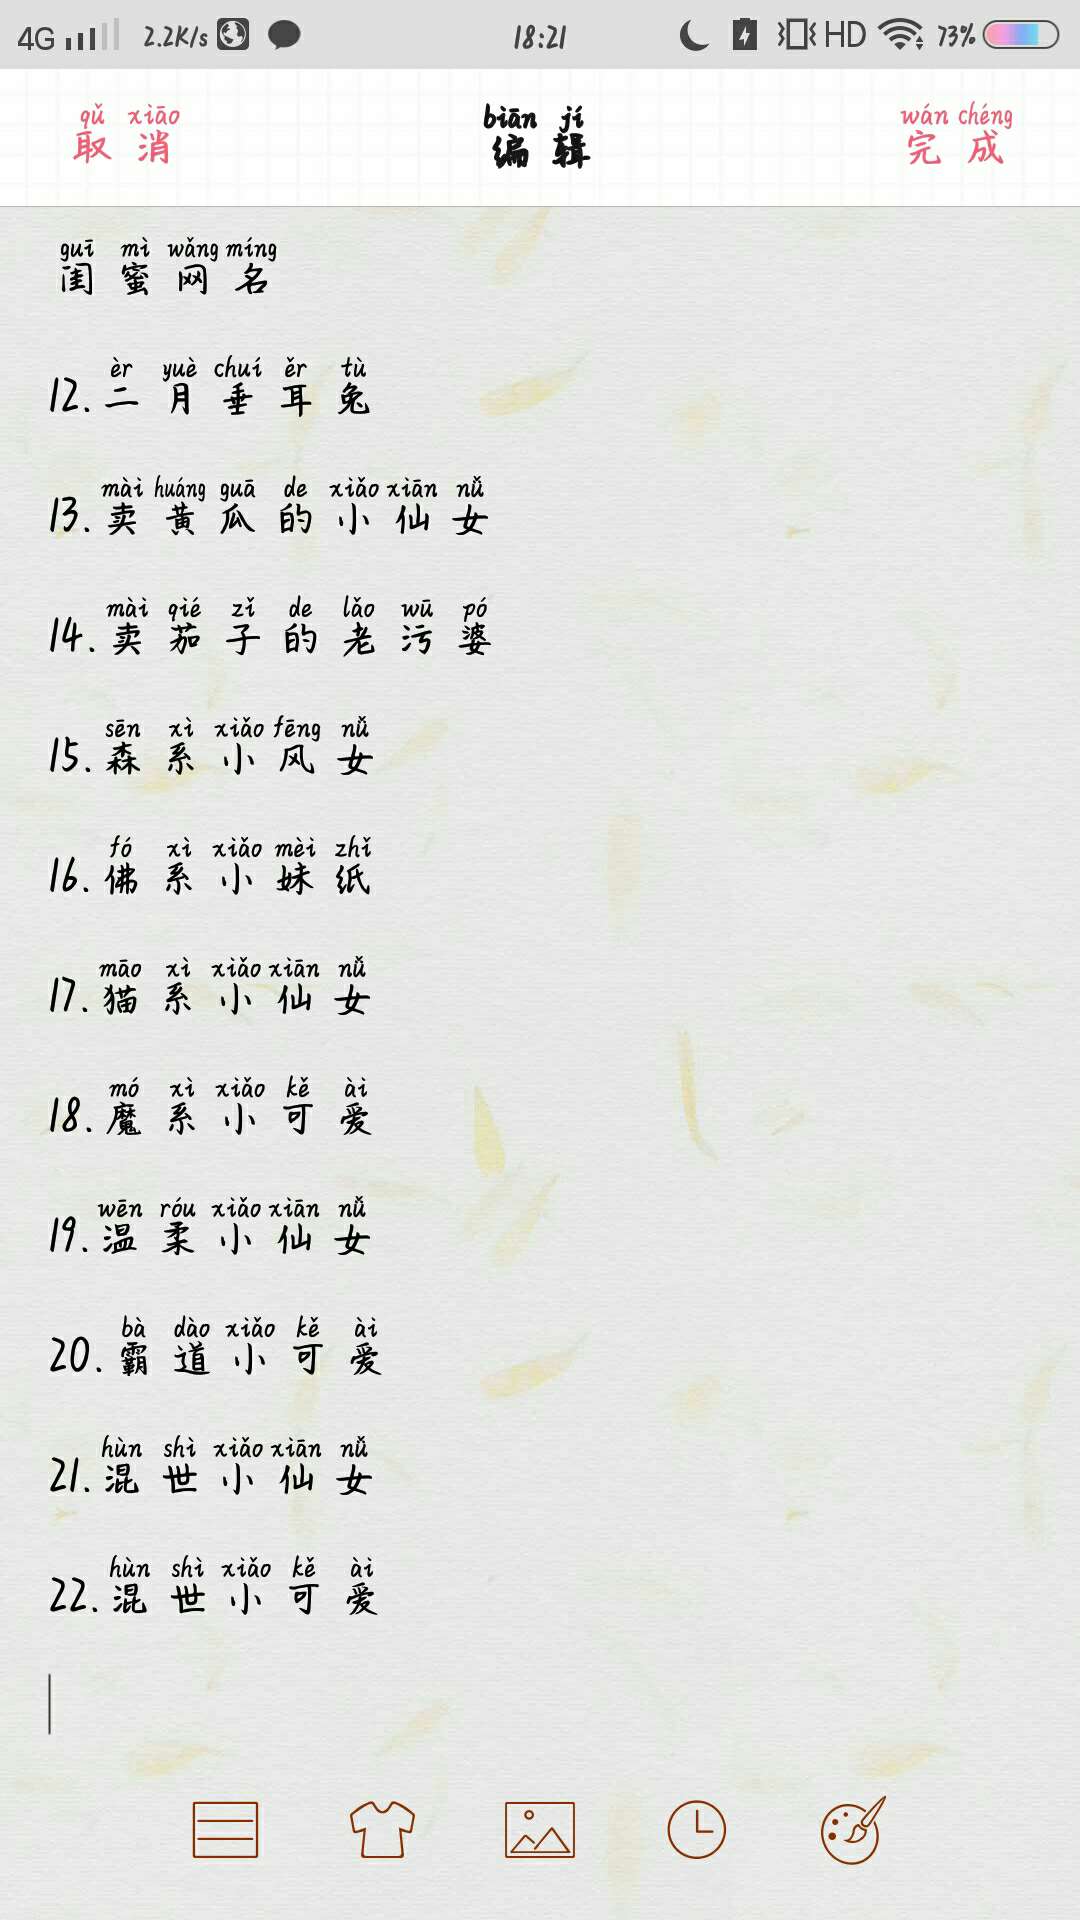 4G 2.2K/s 18:21 HD 73%
qǔ xiāo biān jí wán chéng
取消 编辑 完成
guī mì wǎng míng
闺蜜网名
èr yuè chuí ěr tù
12. 二月垂耳兔
mài huáng guā de xiǎo xiān nǚ
13. 卖黄瓜的小仙女
mài qié zǐ de lǎo wū pó
14. 卖茄子的老污婆
sēn xì xiǎo fēng nǚ
15. 森系小风女
fó xì xiǎo mèi zhǐ
16. 佛系小妹纸
māo xì xiǎo xiān nǚ
17. 猫系小仙女
mó xì xiǎo kě ài
18. 魔系小可爱
wēn róu xiǎo xiān nǚ
19. 温柔小仙女
bà dào xiǎo kě ài
20. 霸道小可爱
hùn shì xiǎo xiān nǚ
21. 混世小仙女
hùn shì xiǎo kě ài
22. 混世小可爱